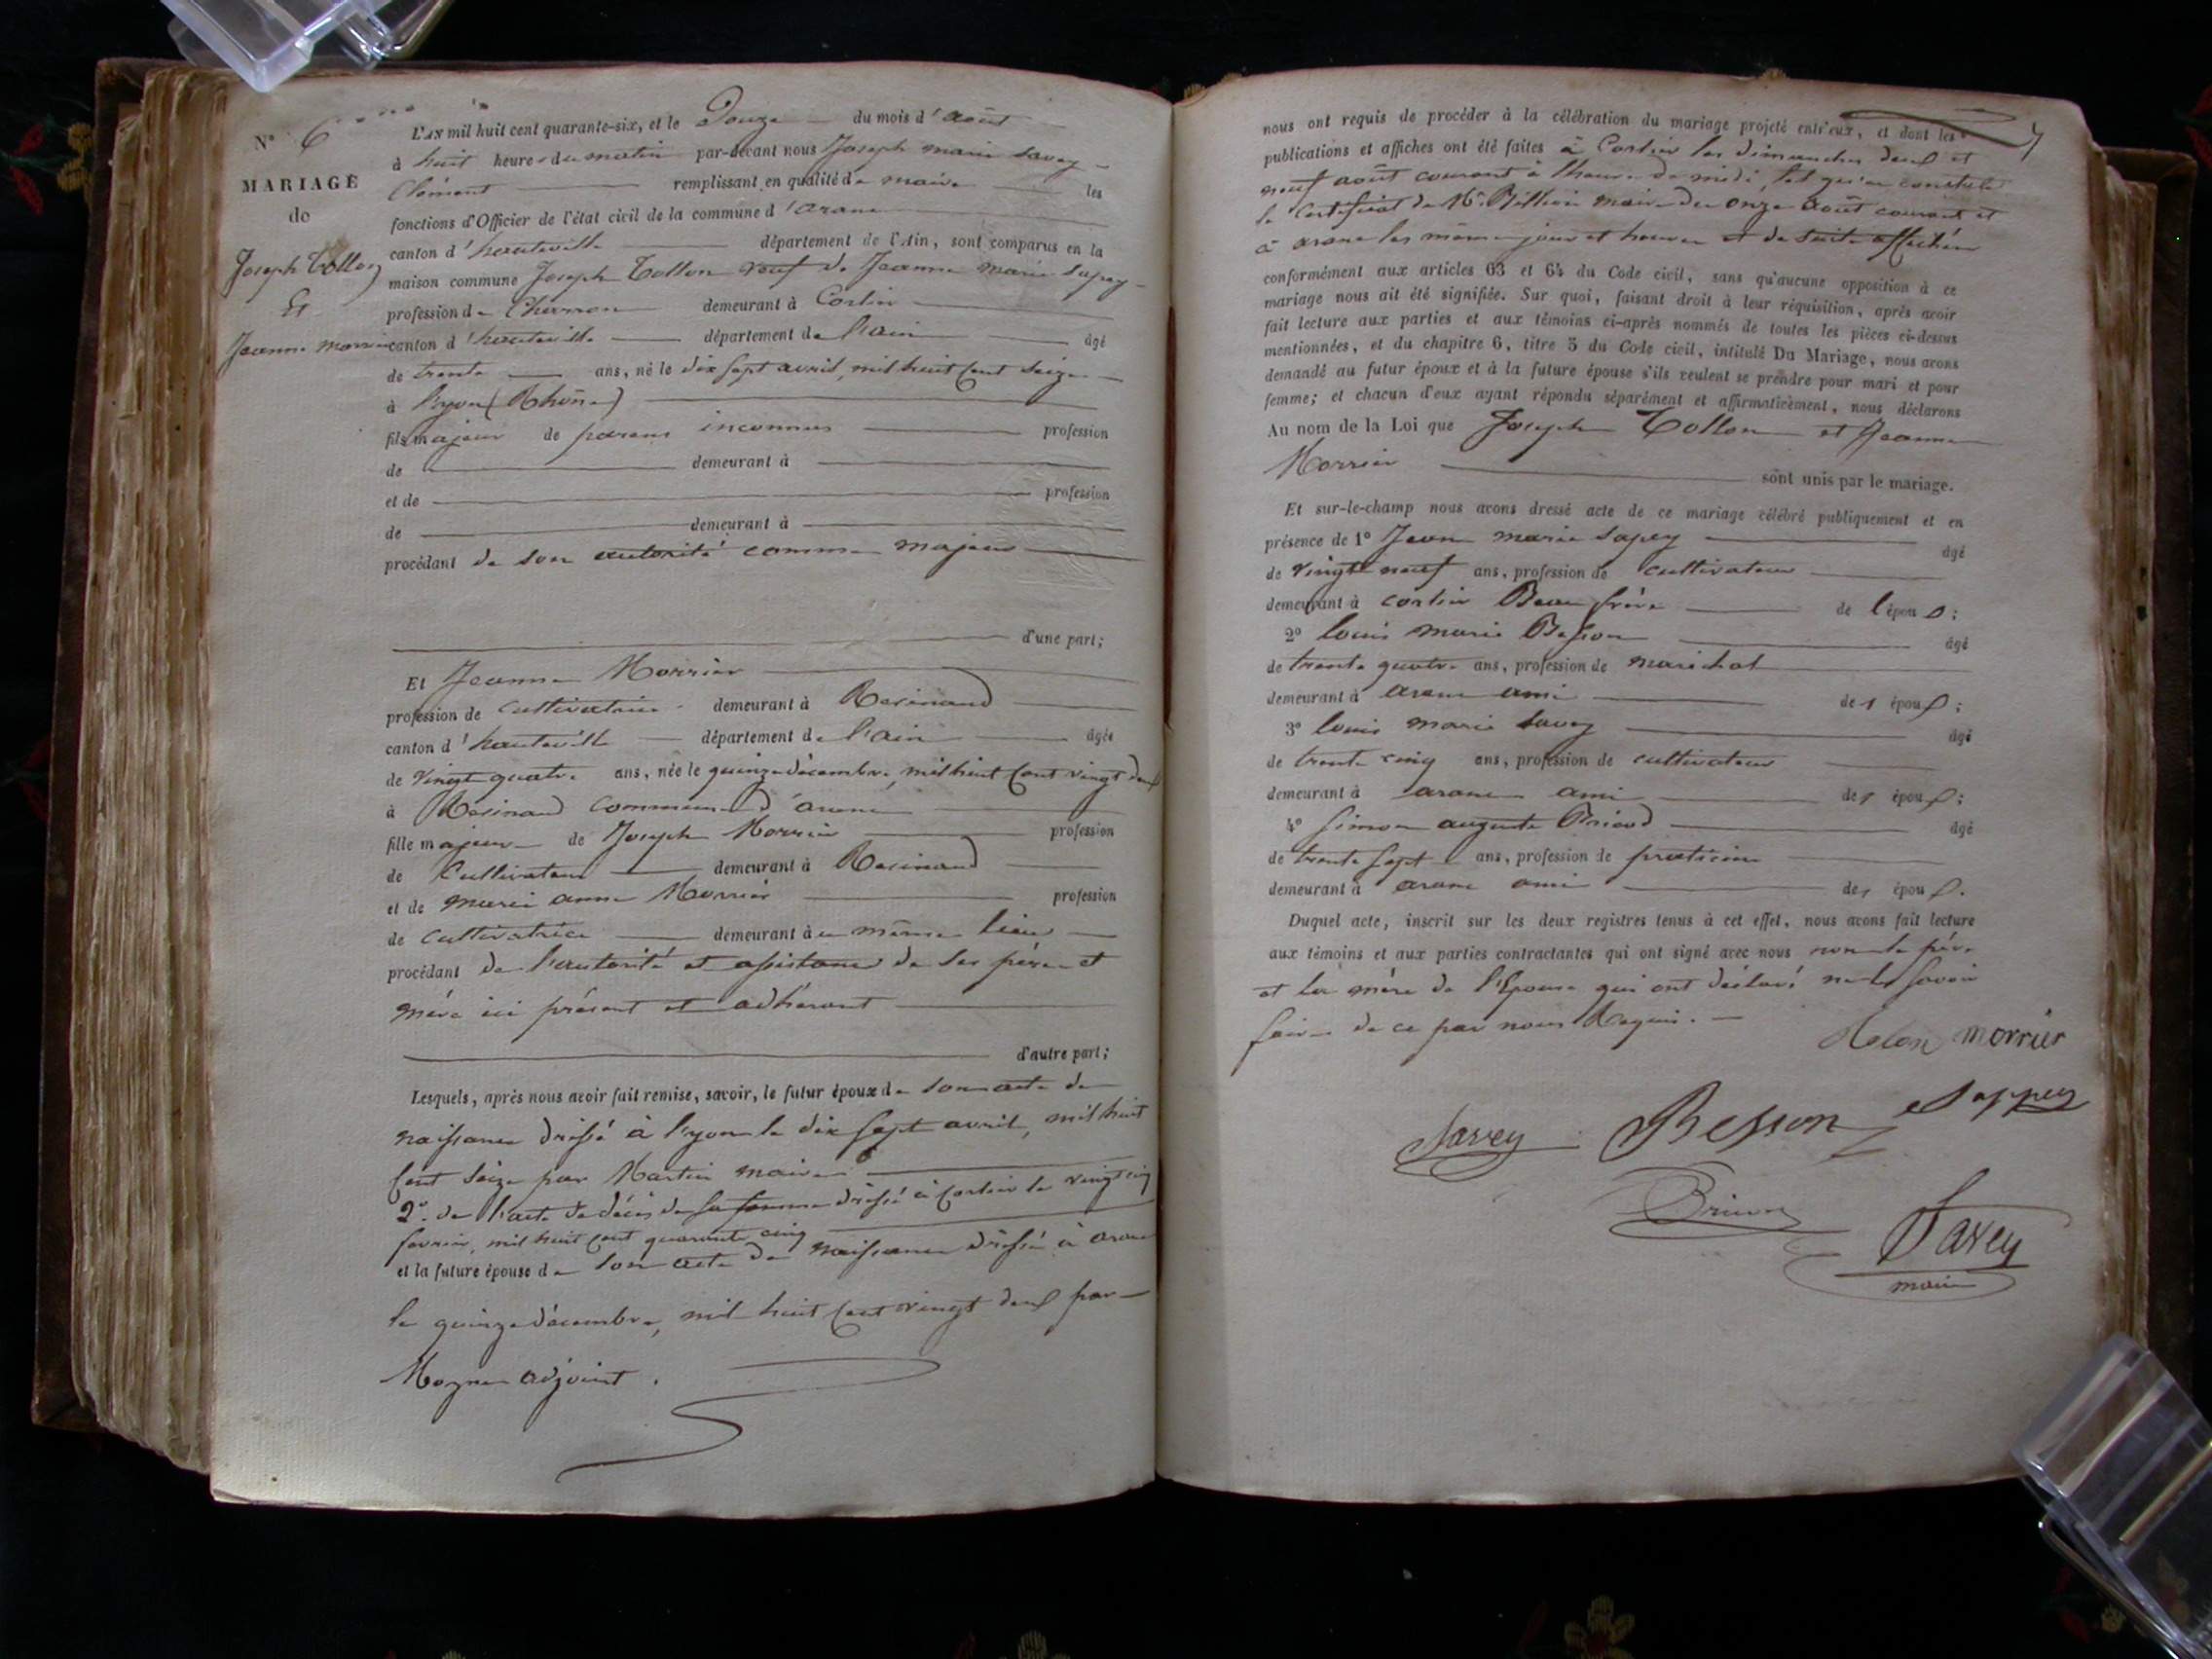 N° 6
MARIAGE
de
Joseph Tollon
Et
Jeanne Morrier
L'AN mil huit cent quarante-six, et le Douze du mois d'août
à huit heures du matin par-devant nous Joseph marie Savey
Clément remplissant en qualité de maire les
fonctions d'Officier de l'état civil de la commune d'arane
canton d'hauteville département de l'Ain, sont comparus en la
maison commune Joseph Tollon veuf de Jeanne marie Sapey
profession de Charron demeurant à Corlier
canton d'hauteville département de l'ain âgé
de trente ans, né le dix sept avril, mil huit cent seize
à lyon (Rhône)
fils majeur de parens inconnus profession
de demeurant à
et de profession
de demeurant à
procédant de son autorité comme majeur
d'une part;
Et Jeanne Morrier
profession de cultivatrice demeurant à Resinand
canton d'hauteville département de l'ain âgée
de vingt quatre ans, née le quinze décembre, mil huit cent vingt deux
à Resinand commune d'arane
fille majeure de Joseph Morrier profession
de Cultivateur demeurant à Resinand
et de marie anne Morrier profession
de cultivatrice demeurant au même lieu
procédant de l'autorité et assistance de ses père et
mère ici présent et adhérant
d'autre part;
Lesquels, après nous avoir fait remise, savoir, le futur époux de son acte de
naissance dréssé à lyon le dix sept avril, mil huit
cent seize par Martin maire
2° de l'acte de décès de sa femme dréssé à Corlier le vingt cinq
fevrier, mil huit cent quarante cinq
et la future épouse de son acte de naissance dréssé à arane
le quinze décembre, mil huit cent vingt deux par
Moyne adjoint.
nous ont requis de procéder à la célébration du mariage projeté entr'eux, et dont les
publications et affiches ont été faites à Corlier les dimanches deux et
neuf août courant à l'heure de midi, tel qu'en constate
le certificat de Mr. Billion maire du onze août courant et
à arane les même jour et heures et de suite affichées
conformément aux articles 63 et 64 du Code civil, sans qu'aucune opposition à ce
mariage nous ait été signifiée. Sur quoi, faisant droit à leur réquisition, après avoir
fait lecture aux parties et aux témoins ci-après nommés de toutes les pièces ci-dessus
mentionnées, et du chapitre 6, titre 5 du Code civil, intitulé Du Mariage, nous avons
demandé au futur époux et à la future épouse s'ils veulent se prendre pour mari et pour
femme; et chacun d'eux ayant répondu séparément et affirmativement, nous déclarons
Au nom de la Loi que Joseph Tollon et Jeanne
Morrier sont unis par le mariage.
Et sur-le-champ nous avons dressé acte de ce mariage célébré publiquement et en
présence de 1° Jean marie Sapey âgé
de vingt neuf ans, profession de cultivateur
demeurant à corlier Beau frère de l'époux;
2° louis marie Besson âgé
de trente quatre ans, profession de maréchal
demeurant à arane ami de l'époux;
3° louis marie Savey âgé
de trente cinq ans, profession de cultivateur
demeurant à arane ami de l'époux;
4° Simon auguste Briord âgé
de trente sept ans, profession de praticien
demeurant à arane ami de l'époux.
Duquel acte, inscrit sur les deux registres tenus à cet effet, nous avons fait lecture
aux témoins et aux parties contractantes qui ont signé avec nous non le père
et la mère de l'épouse qui ont déclaré ne le savoir
faire de ce par nous Requis.
morrier
Savey Besson Sappey
Savey
maire